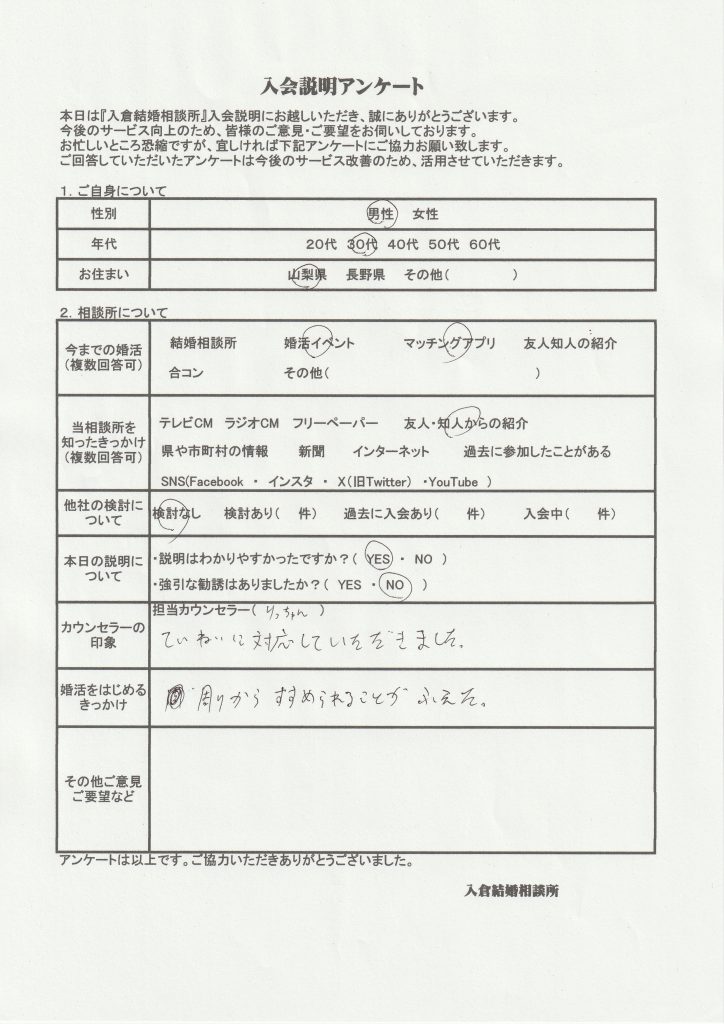 入会説明アンケート
本日は『入倉結婚相談所』入会説明にお越しいただき、誠にありがとうございます。
今後のサービス向上のため、皆様のご意見・ご要望をお伺いしております。
お忙しいところ恐縮ですが、宜しければ下記アンケートにご協力お願い致します。
ご回答していただいたアンケートは今後のサービス改善のため、活用させていただきます。
1．ご自身について
性別 男性 女性
年代 20代 30代 40代 50代 60代
お住まい 山梨県 長野県 その他( )
2．相談所について
今までの婚活 (複数回答可)
結婚相談所 婚活イベント マッチングアプリ 友人知人の紹介
合コン その他( )
当相談所を 知ったきっかけ (複数回答可)
テレビCM ラジオCM フリーペーパー 友人・知人からの紹介
県や市町村の情報 新聞 インターネット 過去に参加したことがある
SNS(Facebook ・ インスタ ・ X(旧Twitter) ・YouTube )
他社の検討に ついて
検討なし 検討あり( 件) 過去に入会あり( 件) 入会中( 件)
本日の説明に ついて
・説明はわかりやすかったですか？( YES ・ NO )
・強引な勧誘はありましたか？( YES ・ NO )
カウンセラーの 印象
担当カウンセラー( りっちゃん )
ていねいに対応していただきました。
婚活をはじめる きっかけ
周りからすすめられることがふえた。
その他ご意見 ご要望など
アンケートは以上です。ご協力いただきありがとうございました。
入倉結婚相談所